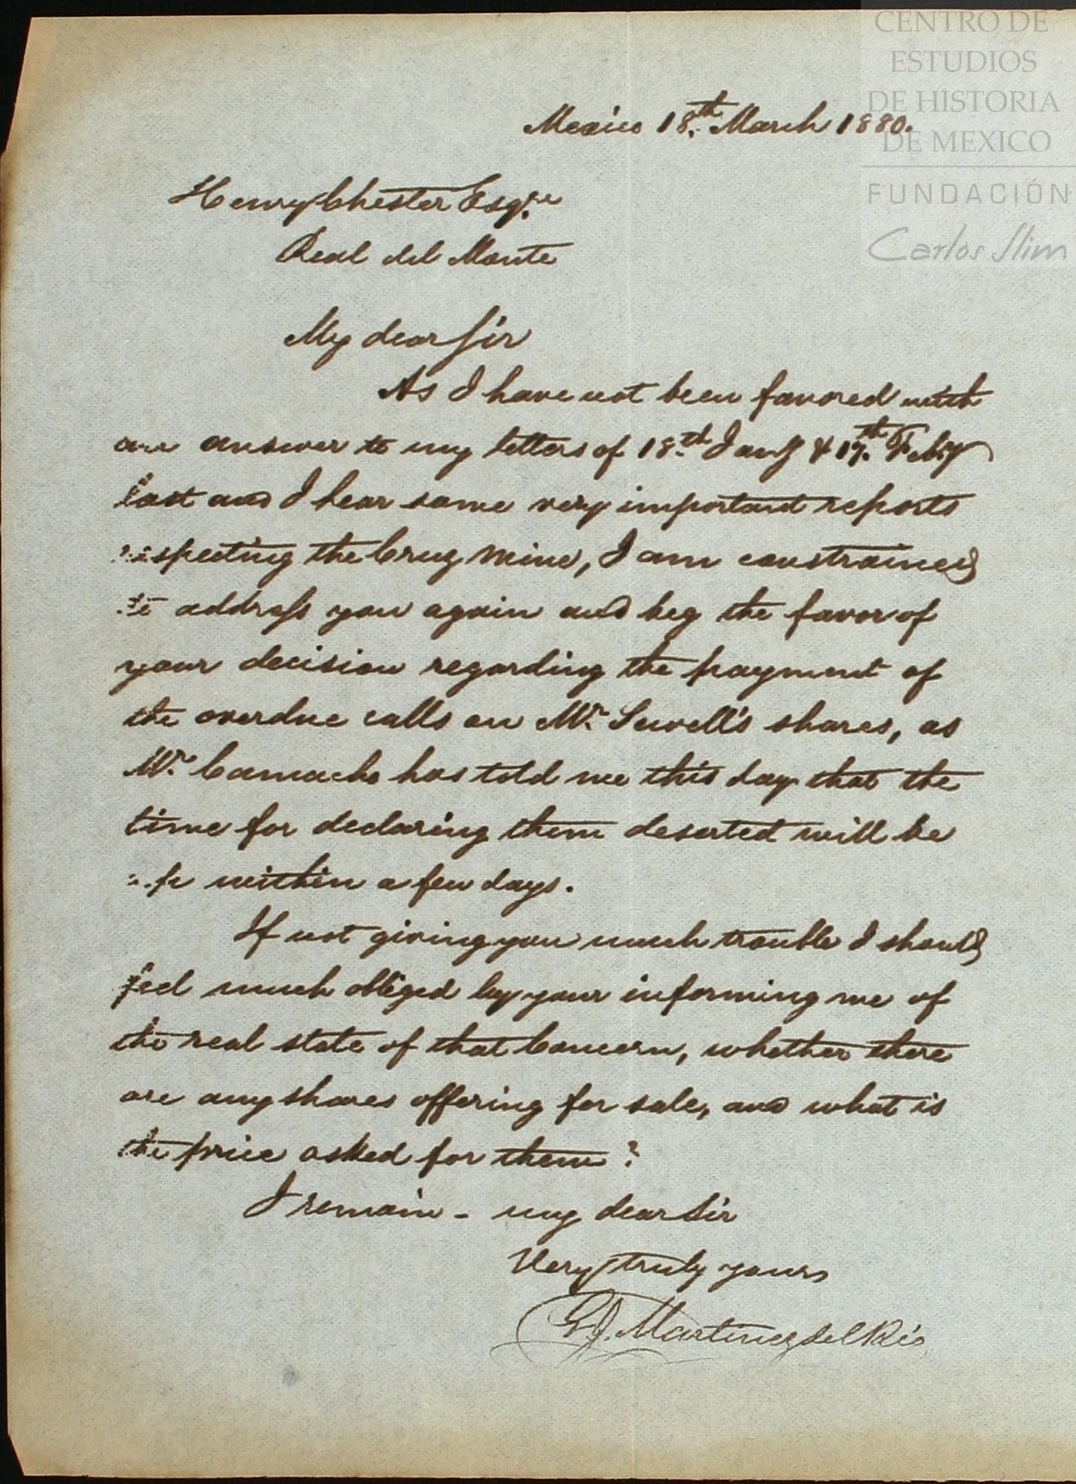 CENTRO DE
ESTUDIOS
DE HISTORIA
DE MEXICO
FUNDACIÓN
Carlos Slim
Mexico 18th March 1880.
Henry Chester Esqre
Real del Monte
My dear Sir
As I have not been favored with
an answer to my letters of 18th Jany & 17th Feby
last and I hear some very important reports
respecting the Cruz Mine, I am constrained
to address you again and beg the favor of
your decision regarding the payment of
the overdue calls on Mr. Sewell's shares, as
Mr. Camacho has told me this day that the
time for declaring them deserted will be
up within a few days.
If not giving you much trouble I should
feel much obliged by your informing me of
the real state of that Concern, whether there
are any shares offering for sale, and what is
the price asked for them?
I remain - my dear Sir
Very truly yours
Martinez del Rio